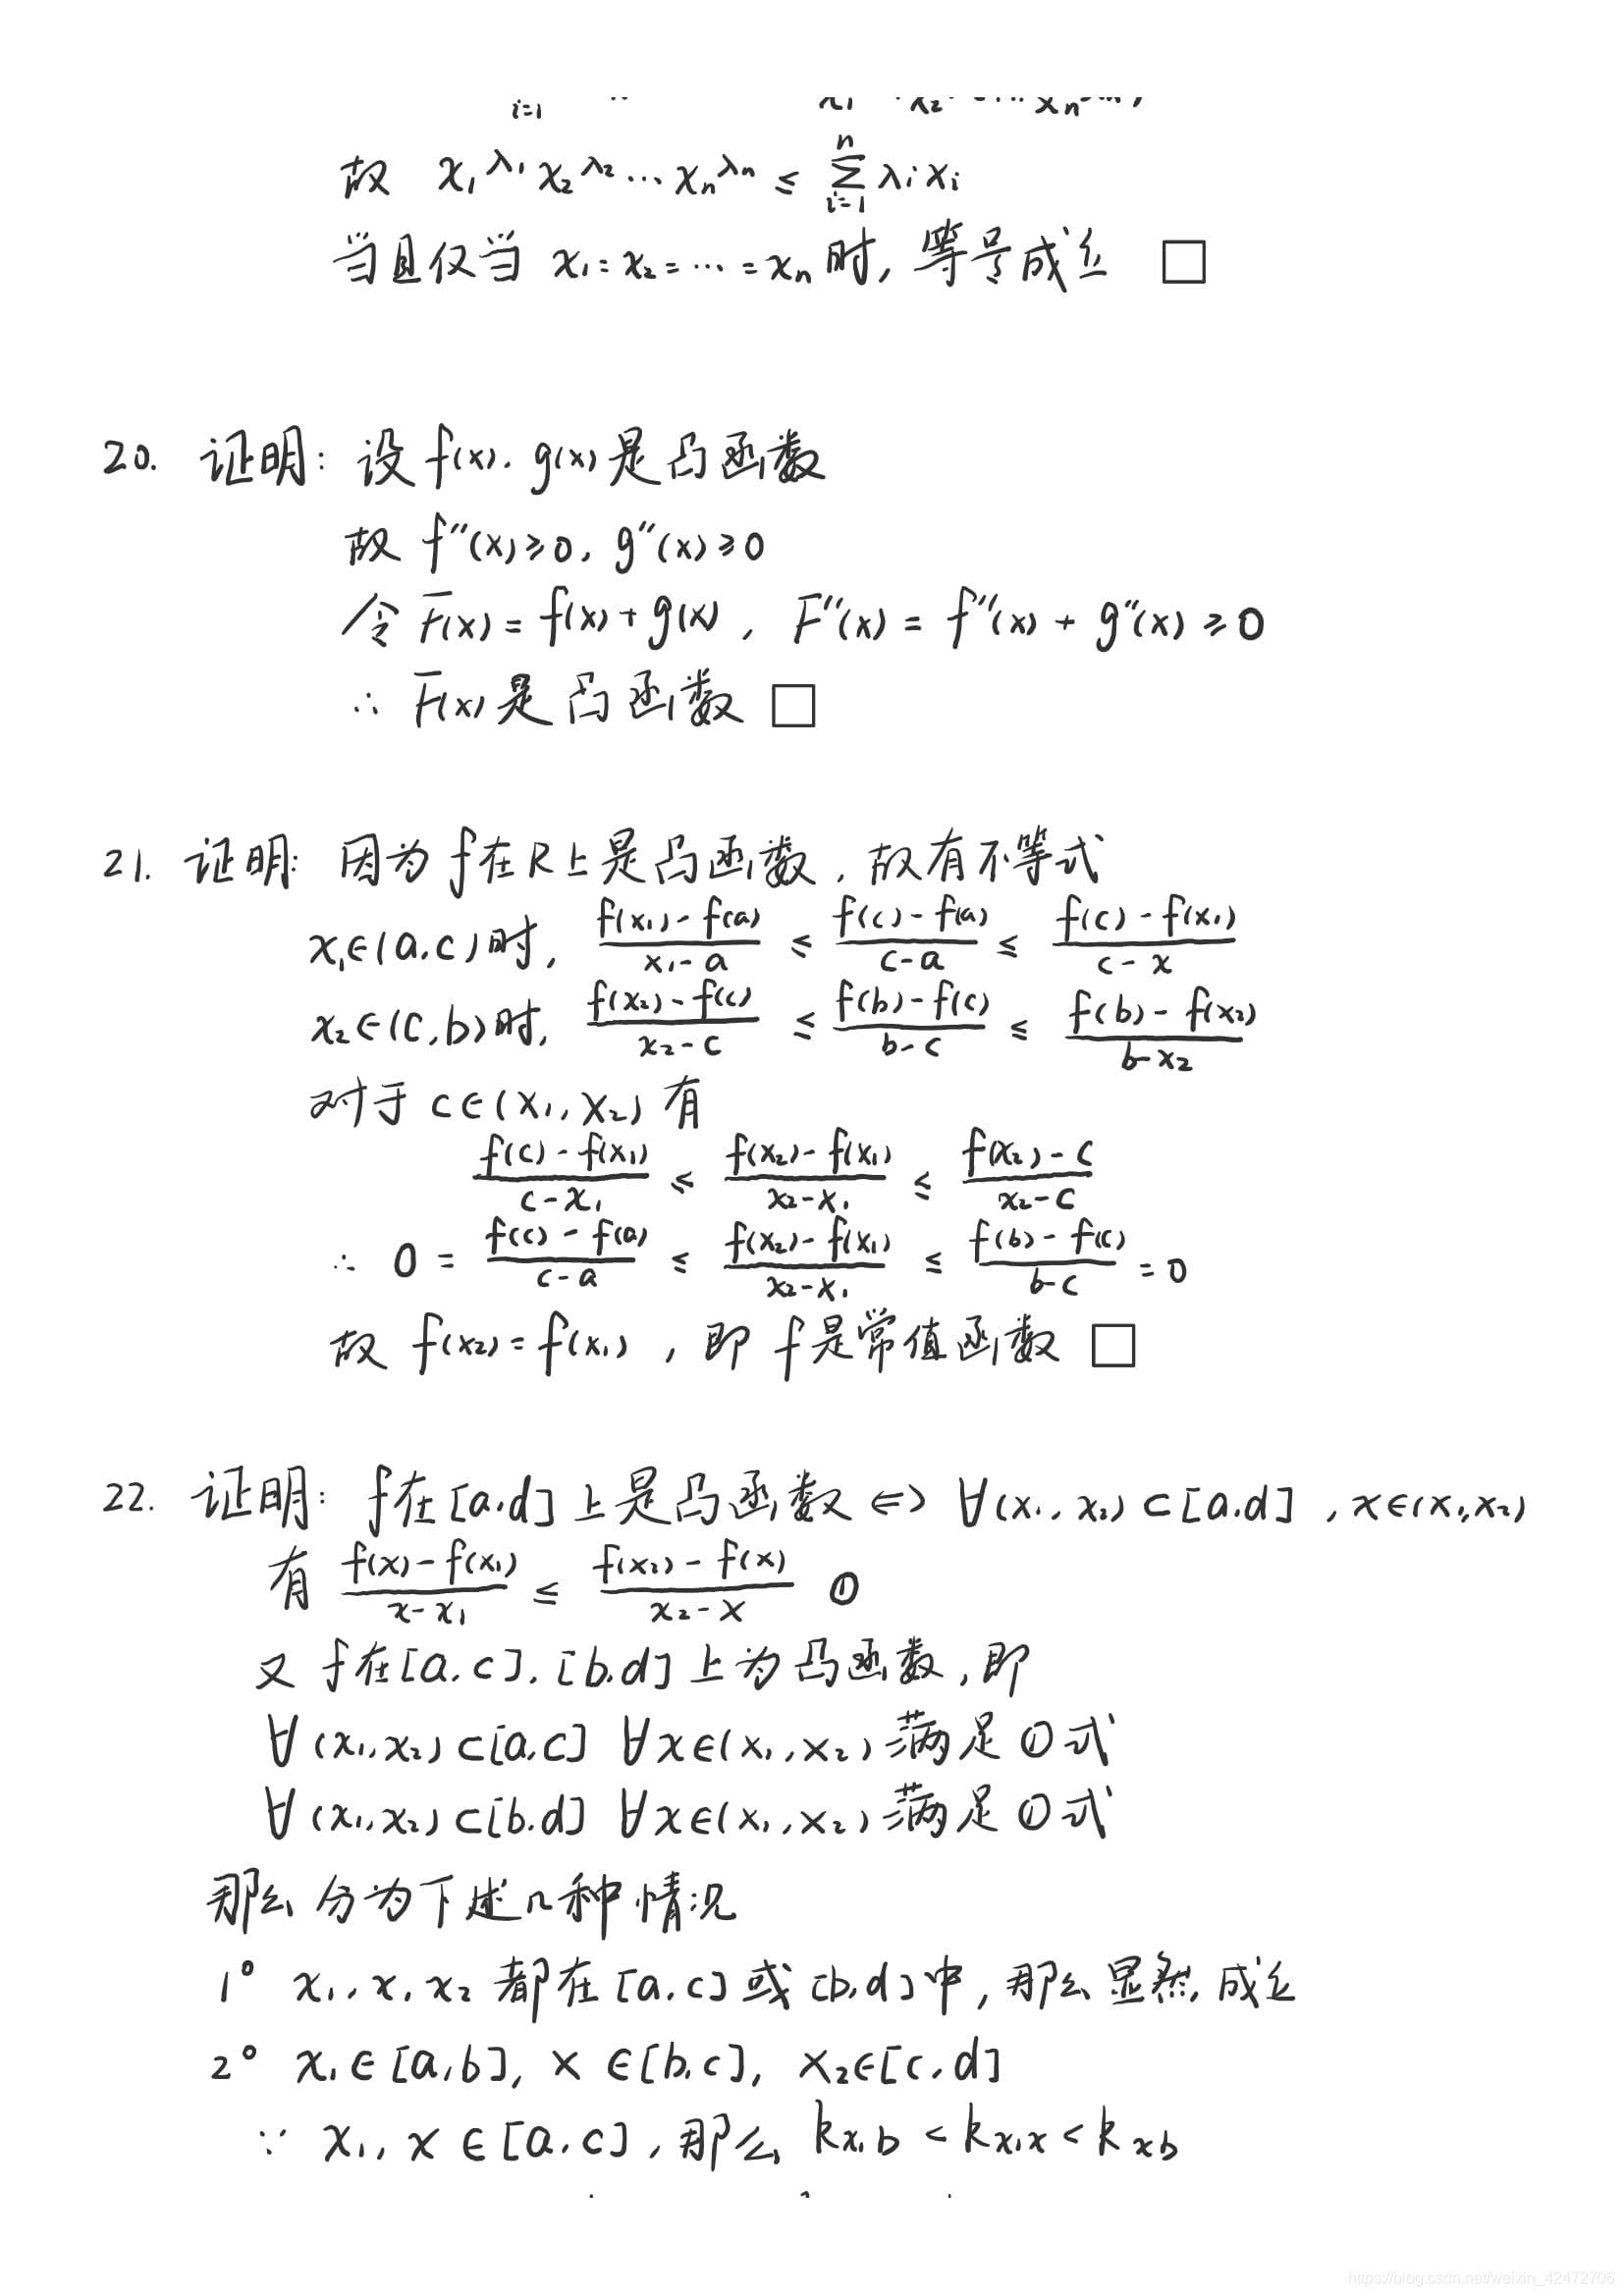 i=1
故 x₁^λ₁ x₂^λ₂ … xₙ^λₙ ≤ Σ_{i=1}^{n} λᵢxᵢ
当且仅当 x₁=x₂=…=xₙ时, 等号成立 □
20. 证明: 设 f(x). g(x)是凸函数
故 f″(x)≥0, g″(x)≥0
令 F(x) = f(x)+g(x), F″(x) = f″(x) + g″(x) ≥0
∴ F(x)是凸函数 □
21. 证明: 因为f在R上是凸函数, 故有不等式
x₁∈(a.c)时, (f(x₁)-f(a))/(x₁-a) ≤ (f(c)-f(a))/(c-a) ≤ (f(c)-f(x₁))/(c-x)
x₂∈(c,b)时, (f(x₂)-f(c))/(x₂-c) ≤ (f(b)-f(c))/(b-c) ≤ (f(b)-f(x₂))/(b-x₂)
对于 c∈(x₁,x₂)有
(f(c)-f(x₁))/(c-x₁) ≤ (f(x₂)-f(x₁))/(x₂-x₁) ≤ (f(x₂)-c)/(x₂-c)
∴ 0 = (f(c)-f(a))/(c-a) ≤ (f(x₂)-f(x₁))/(x₂-x₁) ≤ (f(b)-f(c))/(b-c) = 0
故 f(x₂)=f(x₁), 即 f是常值函数 □
22. 证明: f在[a.d]上是凸函数 ⇔ ∀(x₁,x₂)⊂[a.d], x∈(x₁,x₂)
有 (f(x)-f(x₁))/(x-x₁) ≤ (f(x₂)-f(x))/(x₂-x) ①
又 f在[a.c].[b.d]上为凸函数, 即
∀(x₁,x₂)⊂[a.c] ∀x∈(x₁,x₂)满足①式
∀(x₁,x₂)⊂[b.d] ∀x∈(x₁,x₂)满足①式
那么分为下述几种情况
1° x₁,x,x₂都在[a.c]或[b,d]中, 那么显然成立
2° x₁∈[a,b], x∈[b,c], x₂∈[c,d]
∵ x₁,x∈[a.c], 那么 k_{x₁b} < k_{x₁x} < k_{xb}
https://blog.csdn.net/weixin_42472706